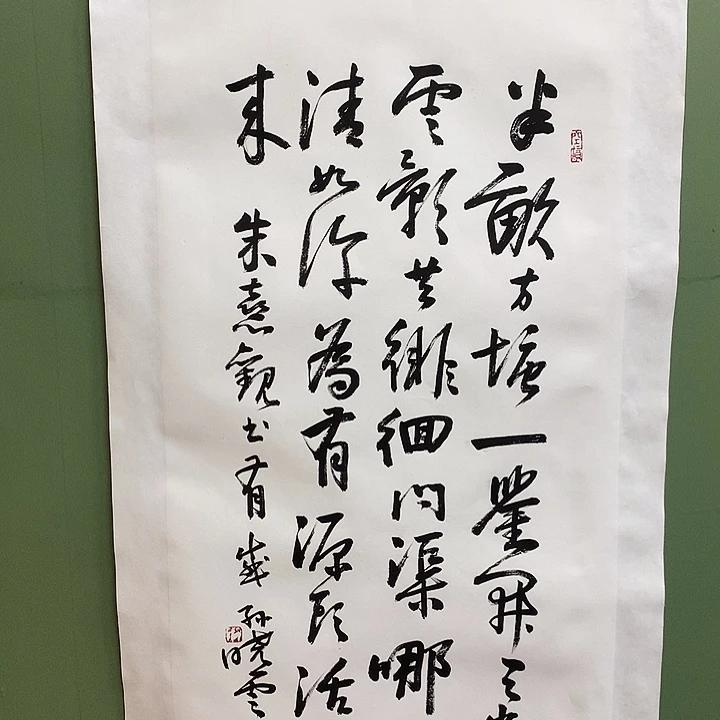 半畝方塘一鑒開天
雲影共徘徊問渠哪
清如許為有源頭活
來 朱熹觀書有感 孫曉雲